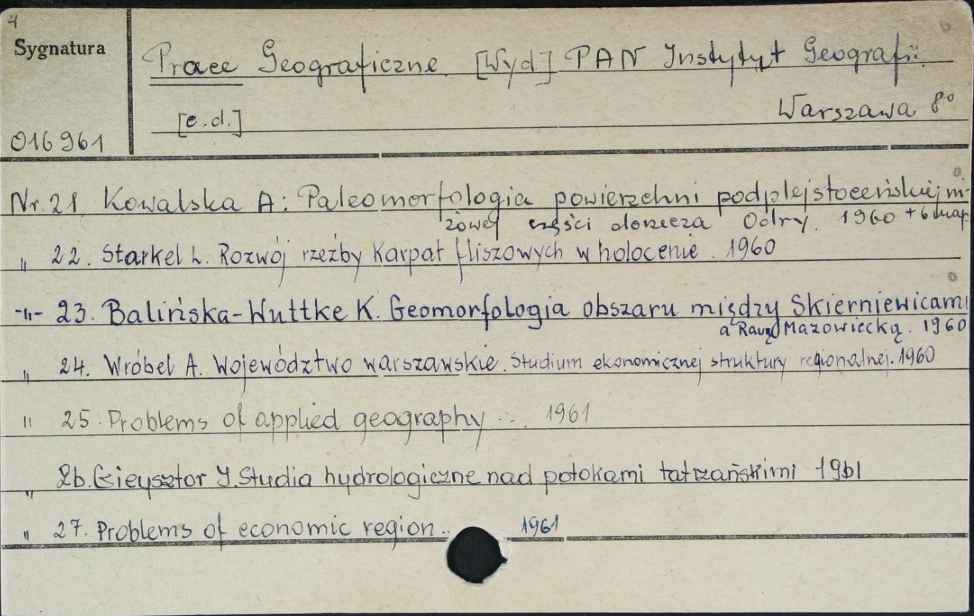 4
Sygnatura
Prace Geograficzne. [Wyd] PAN Instytyt Geografii.
[c.d.] Warszawa 8°
016961
Nr. 21. Kowalska A: Paleomorfologia powierzchni podplejstoceńskiej ni-
żowej części dorzecza Odry. 1960 + 6 map
„ 22. Starkel L. Rozwój rzeźby Karpat fliszowych w holocenie. 1960
-"- 23. Balińska-Wuttke K. Geomorfologia obszaru między Skierniewicami
a Rawą Mazowiecką. 1960
„ 24. Wróbel A. Województwo warszawskie. Studium ekonomicznej struktury regionalnej. 1960
" 25. Problems of applied geography ... 1961
„ 26. Gieysztor I. Studia hydrologiczne nad potokami tatrzańskimi 1961
" 27. Problems of economic region.. 1961